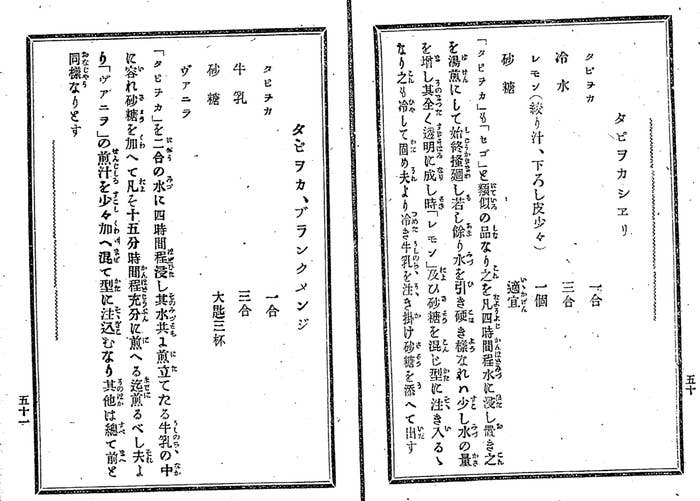 タピヲカシヱリ
タピヲカ 一合
冷水 三合
レモン(絞り汁、下ろし皮少々) 一個
砂糖 適宜
「タピヲカ」も「セゴ」と類似の品なり之を凡四時間程水に浸し置き之
を湯煎にして始終搔廻し若し餘り水を引き硬き樣なれハ少し水の量
を増し其全く透明に成し時「レモン」及ひ砂糖を混じ型に注き入るゝ
なり之も冷して固め夫より冷き牛乳を注き掛け砂糖を添へて出す
五十
タピヲカ、ブランクメンジ
タピヲカ 一合
牛乳 三合
砂糖 大匙三杯
ヴアニラ
「タピヲカ」を二合の水に四時間程浸し其水共よ煎立てたる牛乳の中
に容れ砂糖を加へて凡そ十五分時間程充分に煎へる迄煎るべし夫よ
り「ヴアニラ」の煎汁を少々加へ混て型に注込むなり其他は總て前と
同樣なりとす
五十一